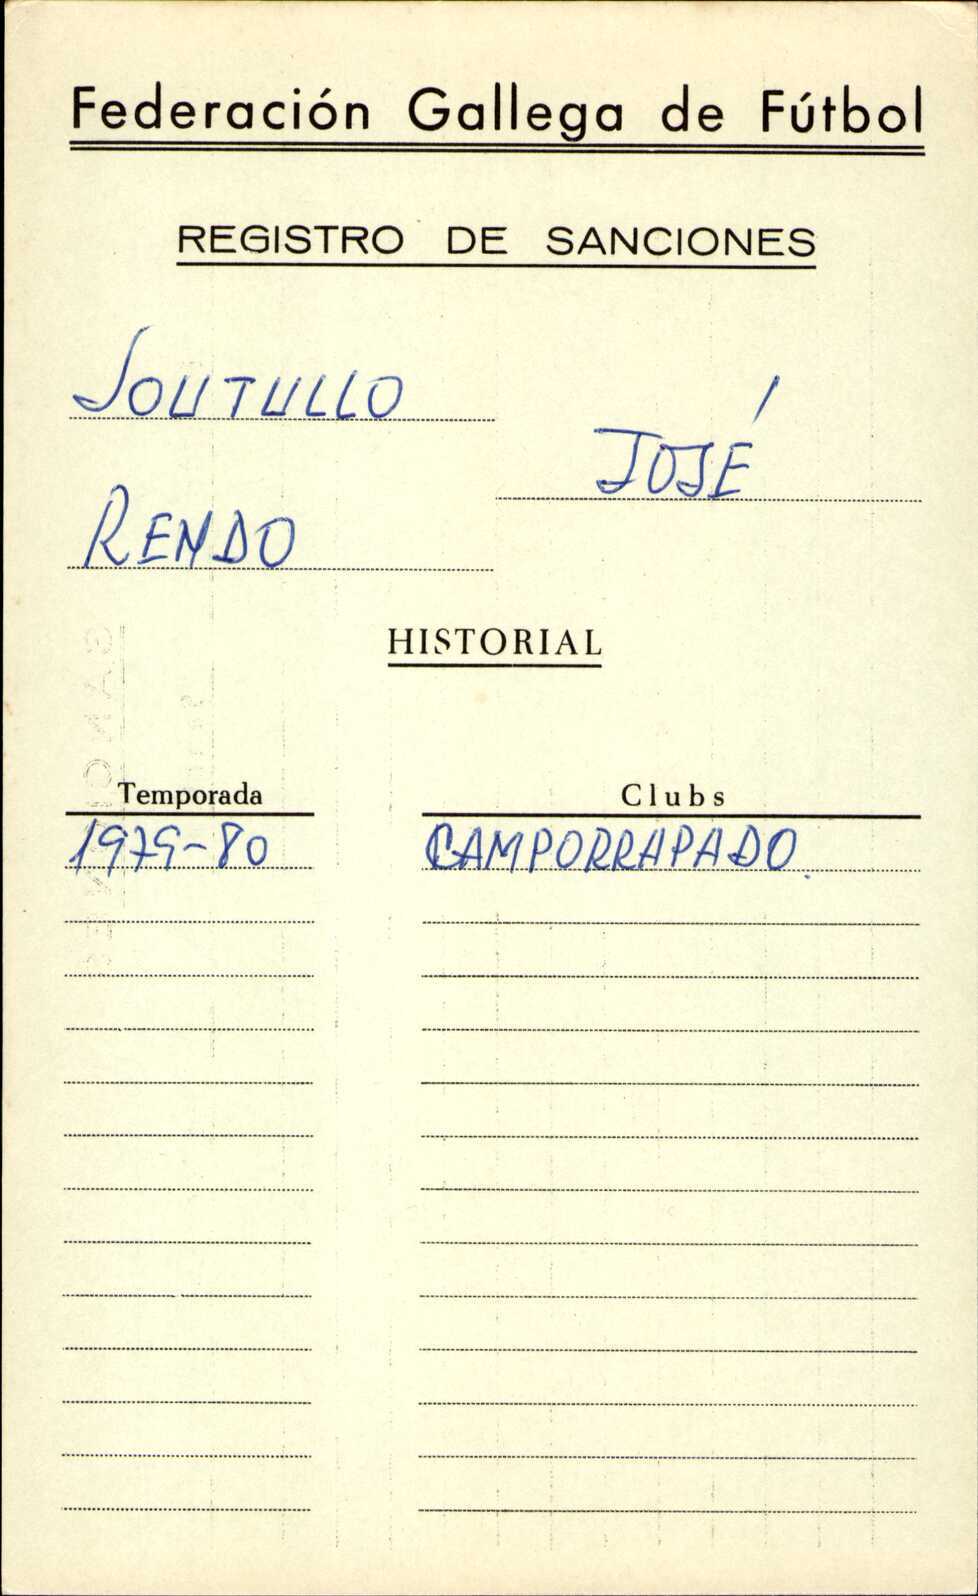 Federación Gallega de Fútbol
REGISTRO DE SANCIONES
SOUTULLO
JOSÉ
RENDO
HISTORIAL
Temporada Clubs
1979-80 CAMPORRAPADO.